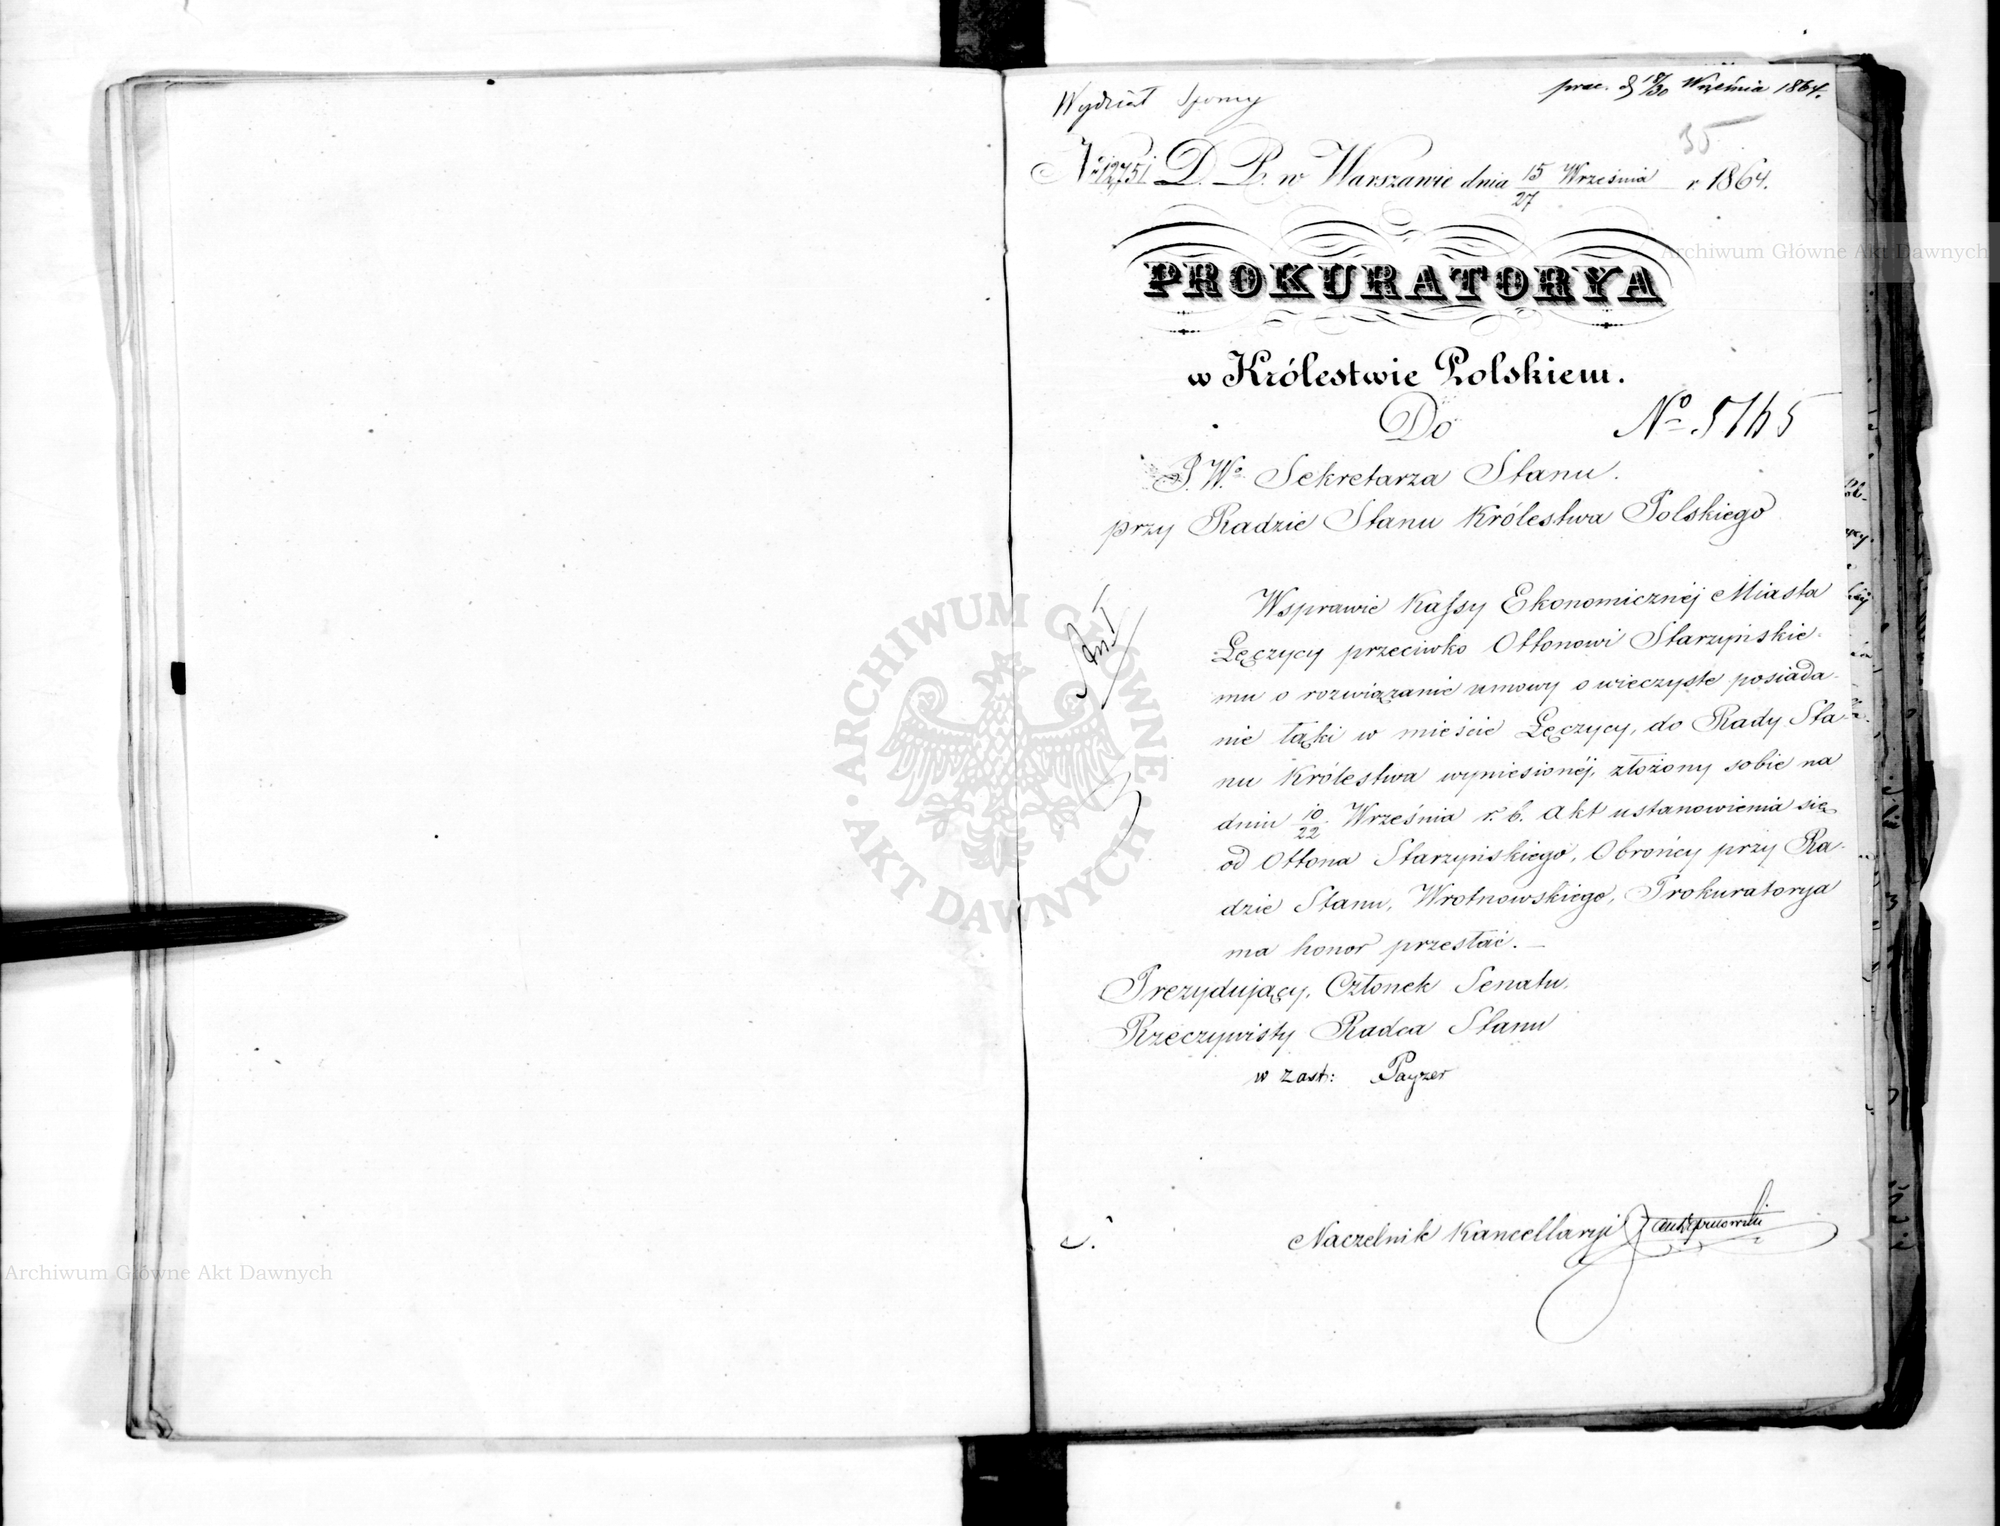 Wydział Sporny
prez. d. 18/30 Września 1864.
35
№ 12751 D. P. w Warszawie dnia 15/27 Września r. 1864.
PROKURATORYA
w Królestwie Polskiem.
Do № 5165
J. W.º Sekretarza Stanu.
przy Radzie Stanu Królestwa Polskiego
W sprawie Kassy Ekonomicznéj Miasta
Łęczycy przeciwko Ottonowi Starzyńskie-
mu o rozwiązanie umowy o wieczyste posiada-
nie łąki w mieście Łęczycy, do Rady Sta-
nu Królestwa wyniesionéj, złożony sobie na
dniu 10/22 Września r. b. Akt ustanowienia się
od Ottona Starzyńskiego, Obrońcy przy Ra-
dzie Stanu, Wrotnowskiego, Prokuratorya
ma honor przesłać. —
Prezydujący, Członek Senatu,
Rzeczywisty Radca Stanu
w zast: Payzer
Naczelnik Kancellaryi
Archiwum Główne Akt Dawnych
ARCHIWUM GŁÓWNE AKT DAWNYCH
Archiwum Główne Akt Dawnych